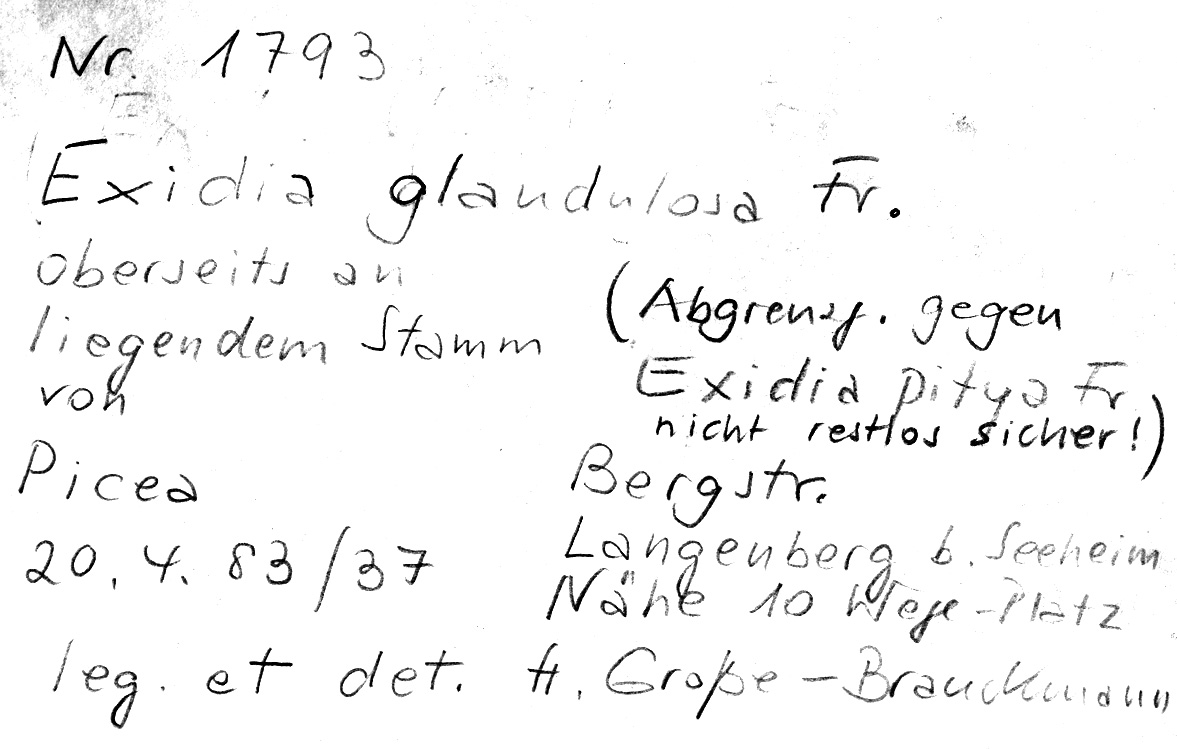 Nr. 1793
Exidia glandulosa Fr.
oberseits an
liegendem Stamm
von
Picea
20. 4. 83/37
(Abgrenzg. gegen
Exidia pitya Fr.
nicht restlos sicher!)
Bergstr.
Langenberg b. Seeheim
Nähe 10 Wege-Platz
leg. et det. H. Große-Brauckmann